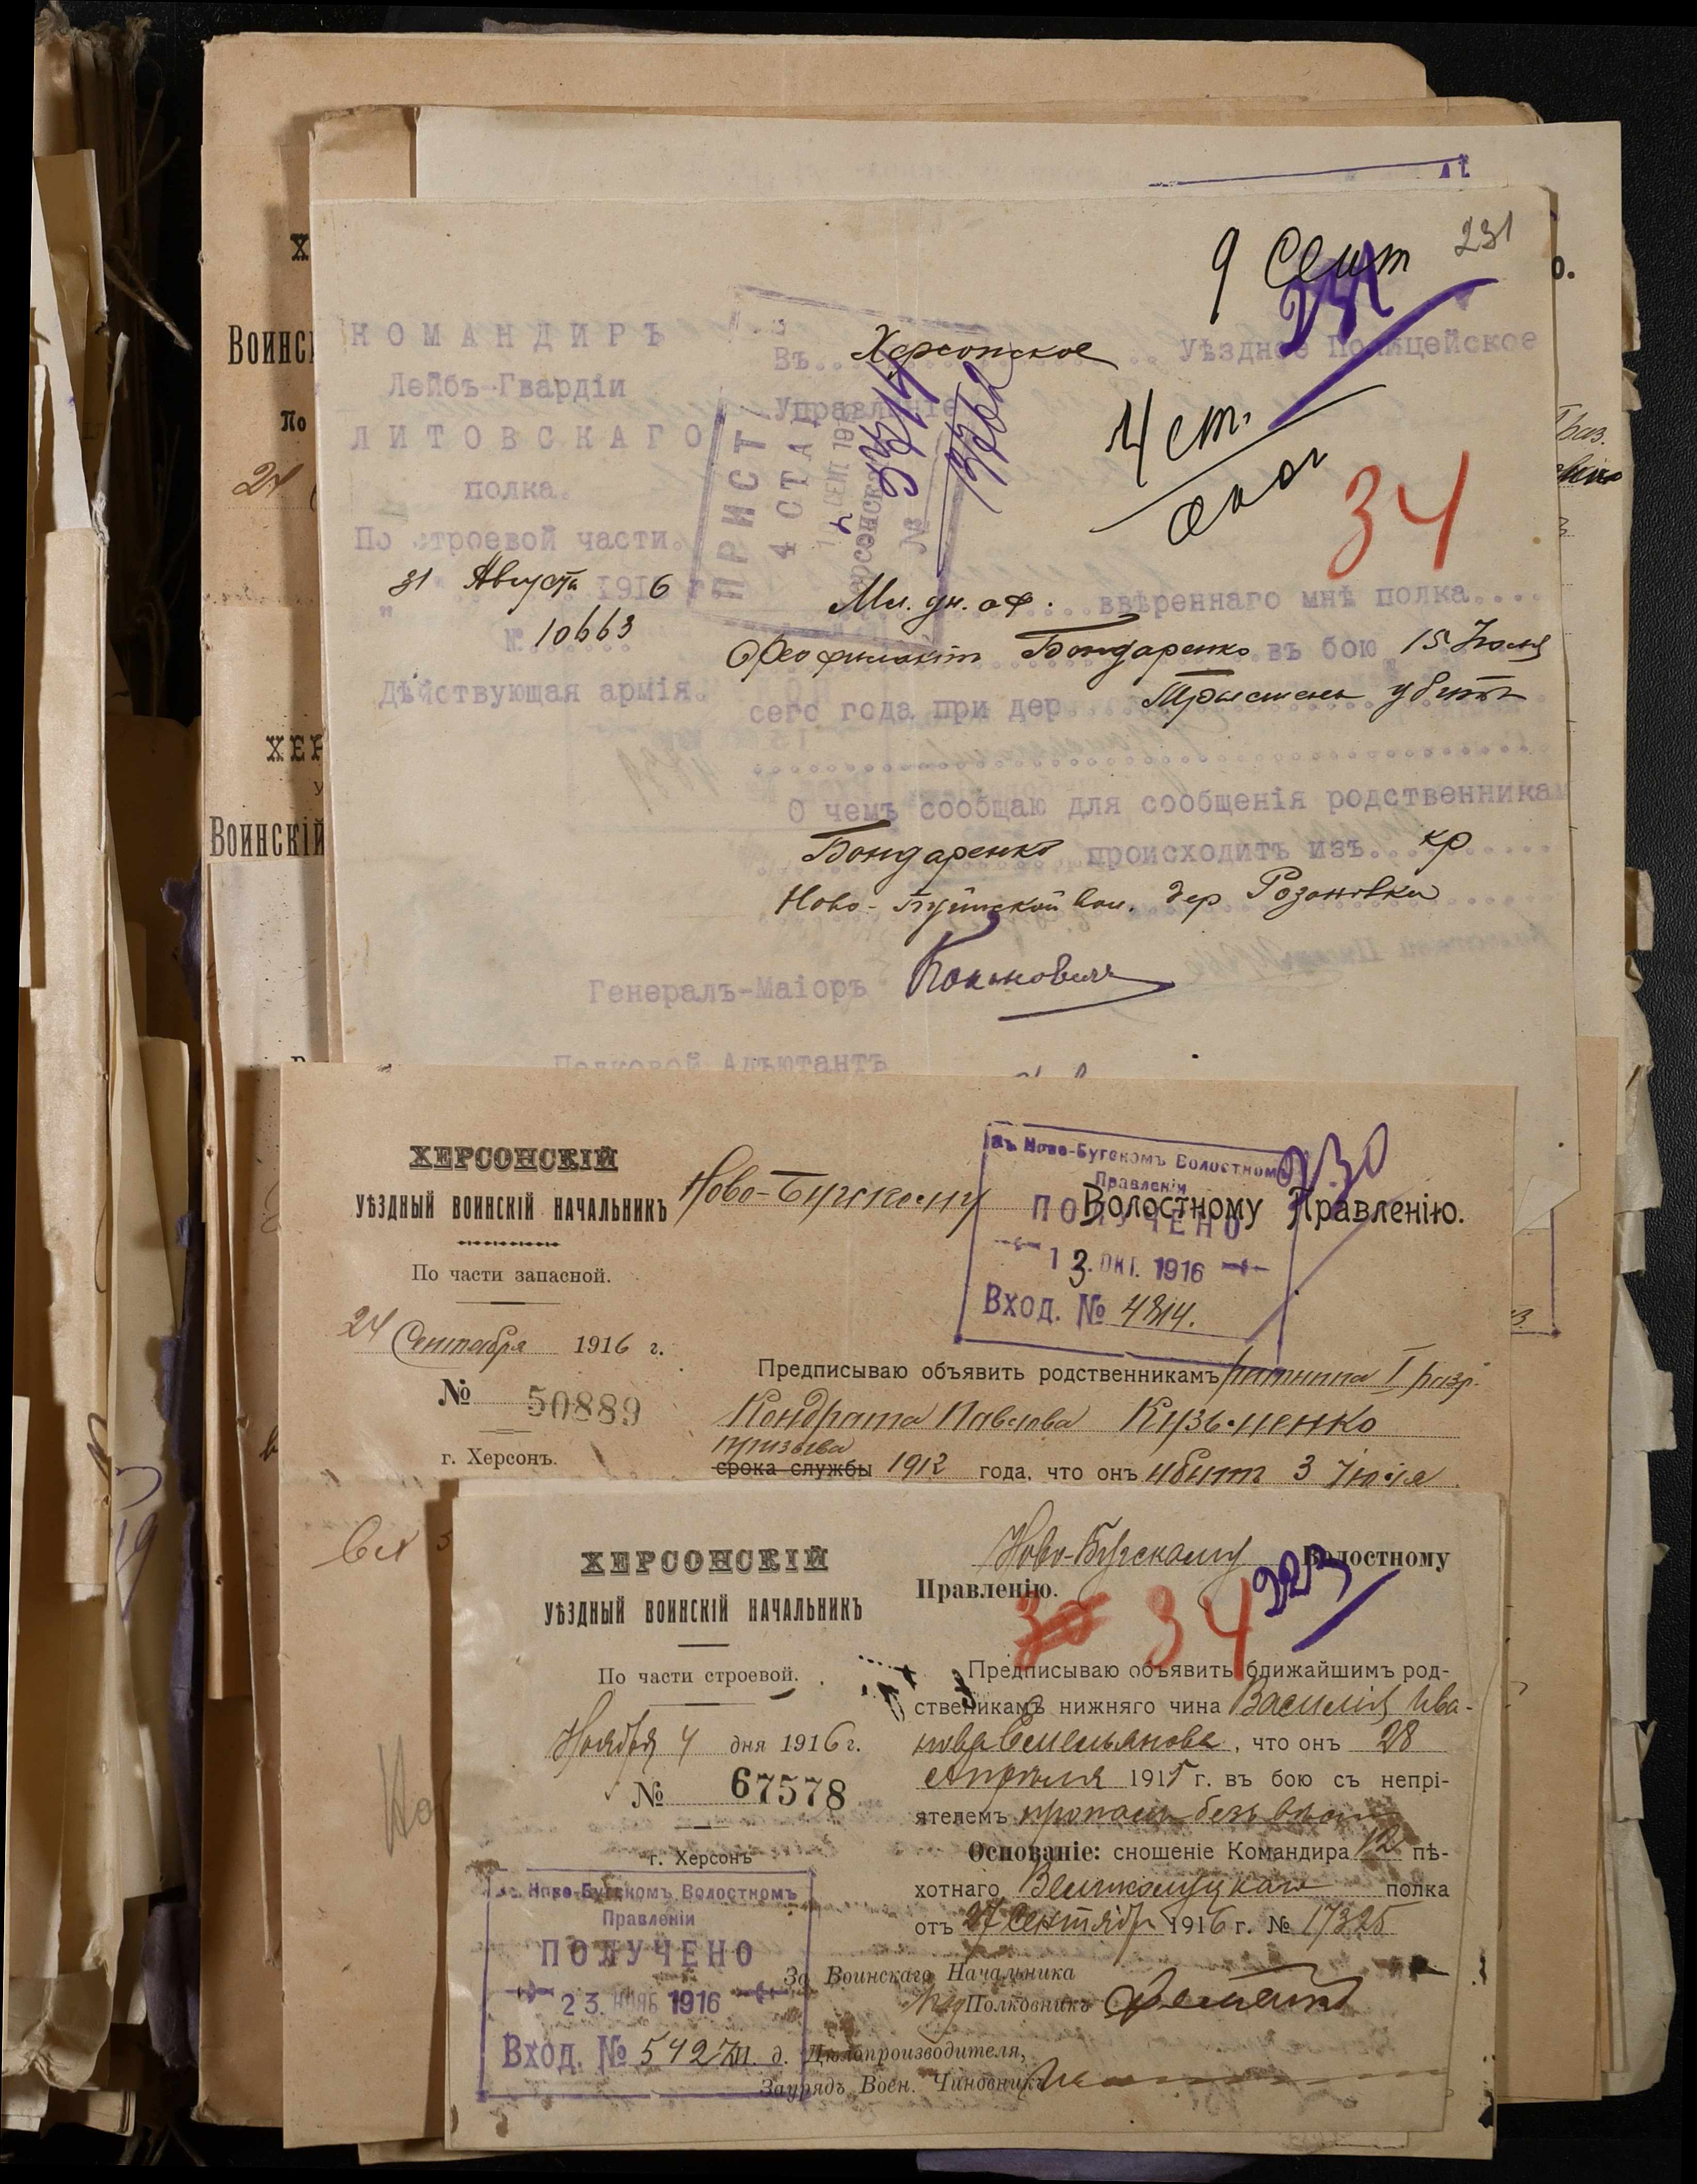 231
9 Сент
231
КОМАНДИРЪ
Лейбъ-Гвардіи
ЛИТОВСКАГО
полка.
По строевой части.
31 Августа 1916 г
№ 10663
Дѣйствующая армія.
Въ Херсонское Уѣздное Полицейское
Управленіе
ПРИСТ
4 СТАН
СЕНТ 191
Херсонск
№
4 ст.
34
Мл. ун. оф. ввѣреннаго мнѣ полка
Феофилактъ Бондаренко въ бою 15 Іюля
сего года при дер. Трыстень убитъ
О чемъ сообщаю для сообщенія родственникам
Бондаренко происходитъ изъ кр
Ново-Бугской вол. дер Розановка
Генералъ-Маіоръ
Полковой Адъютантъ
ХЕРСОНСКІЙ
УѢЗДНЫЙ ВОИНСКІЙ НАЧАЛЬНИКЪ
По части запасной.
24 Сентября 1916 г.
№ 50889
г. Херсонъ.
230
Ново-Бугскому Волостному Правленію.
въ Ново-Бугскомъ Волостномъ
Правленіи
ПОЛУЧЕНО
13. ОКТ. 1916
Вход. № 4814.
Предписываю объявить родственникамъ ратника I разр.
Кондрата Павлова Кузьменко
призыва
срока службы 1912 года, что онъ убитъ 3 Іюля
ХЕРСОНСКІЙ
УѢЗДНЫЙ ВОИНСКІЙ НАЧАЛЬНИКЪ
По части строевой.
Ноября 4 дня 1916 г.
№ 67578
г. Херсонъ
Ново-Бугскому Волостному
Правленію.
34
223
Предписываю объявить ближайшимъ род-
ственикамъ нижняго чина Василія Ива-
нова Емельянова, что онъ 28
Апрѣля 1915 г. въ бою съ непрі-
ятелемъ пропалъ безъ вѣсти
Основаніе: сношеніе Командира 12 пѣ-
хотнаго Великолуцкаго полка
отъ 27 Сентября 1916 г. № 17325
За Воинскаго Начальника
Полковникъ
И. д. Дѣлопроизводителя,
Заурядъ Воен. Чиновникъ
въ Ново-Бугскомъ Волостномъ
Правленіи
ПОЛУЧЕНО
23. НОЯБ 1916
Вход. № 5427